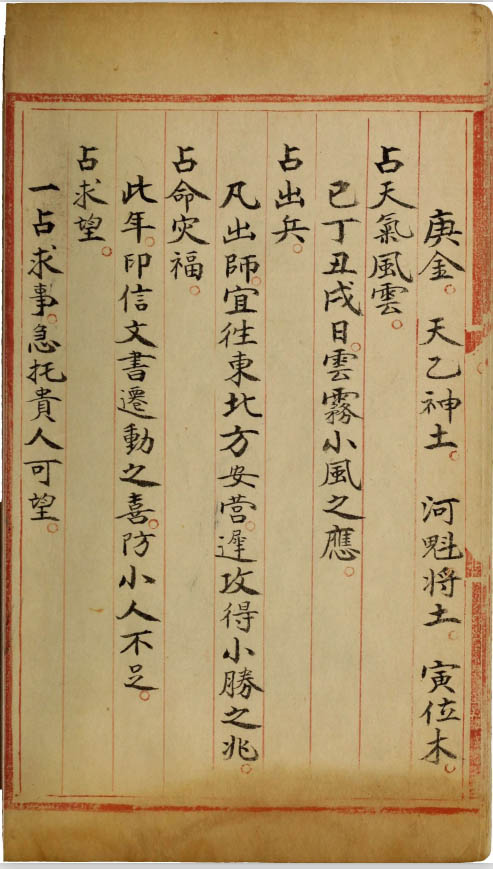 庚金。天乙神土。河魁将土。寅位木。
占天氣風雲。
已丁丑戌日。雲霧小風之應。
占出兵。
凡出師。宜往東北方安營。遲攻得小勝之兆。
占命灾福。
此年。印信文書遷動之喜。防小人不足。
占求望。
一占求事。急托貴人可望。